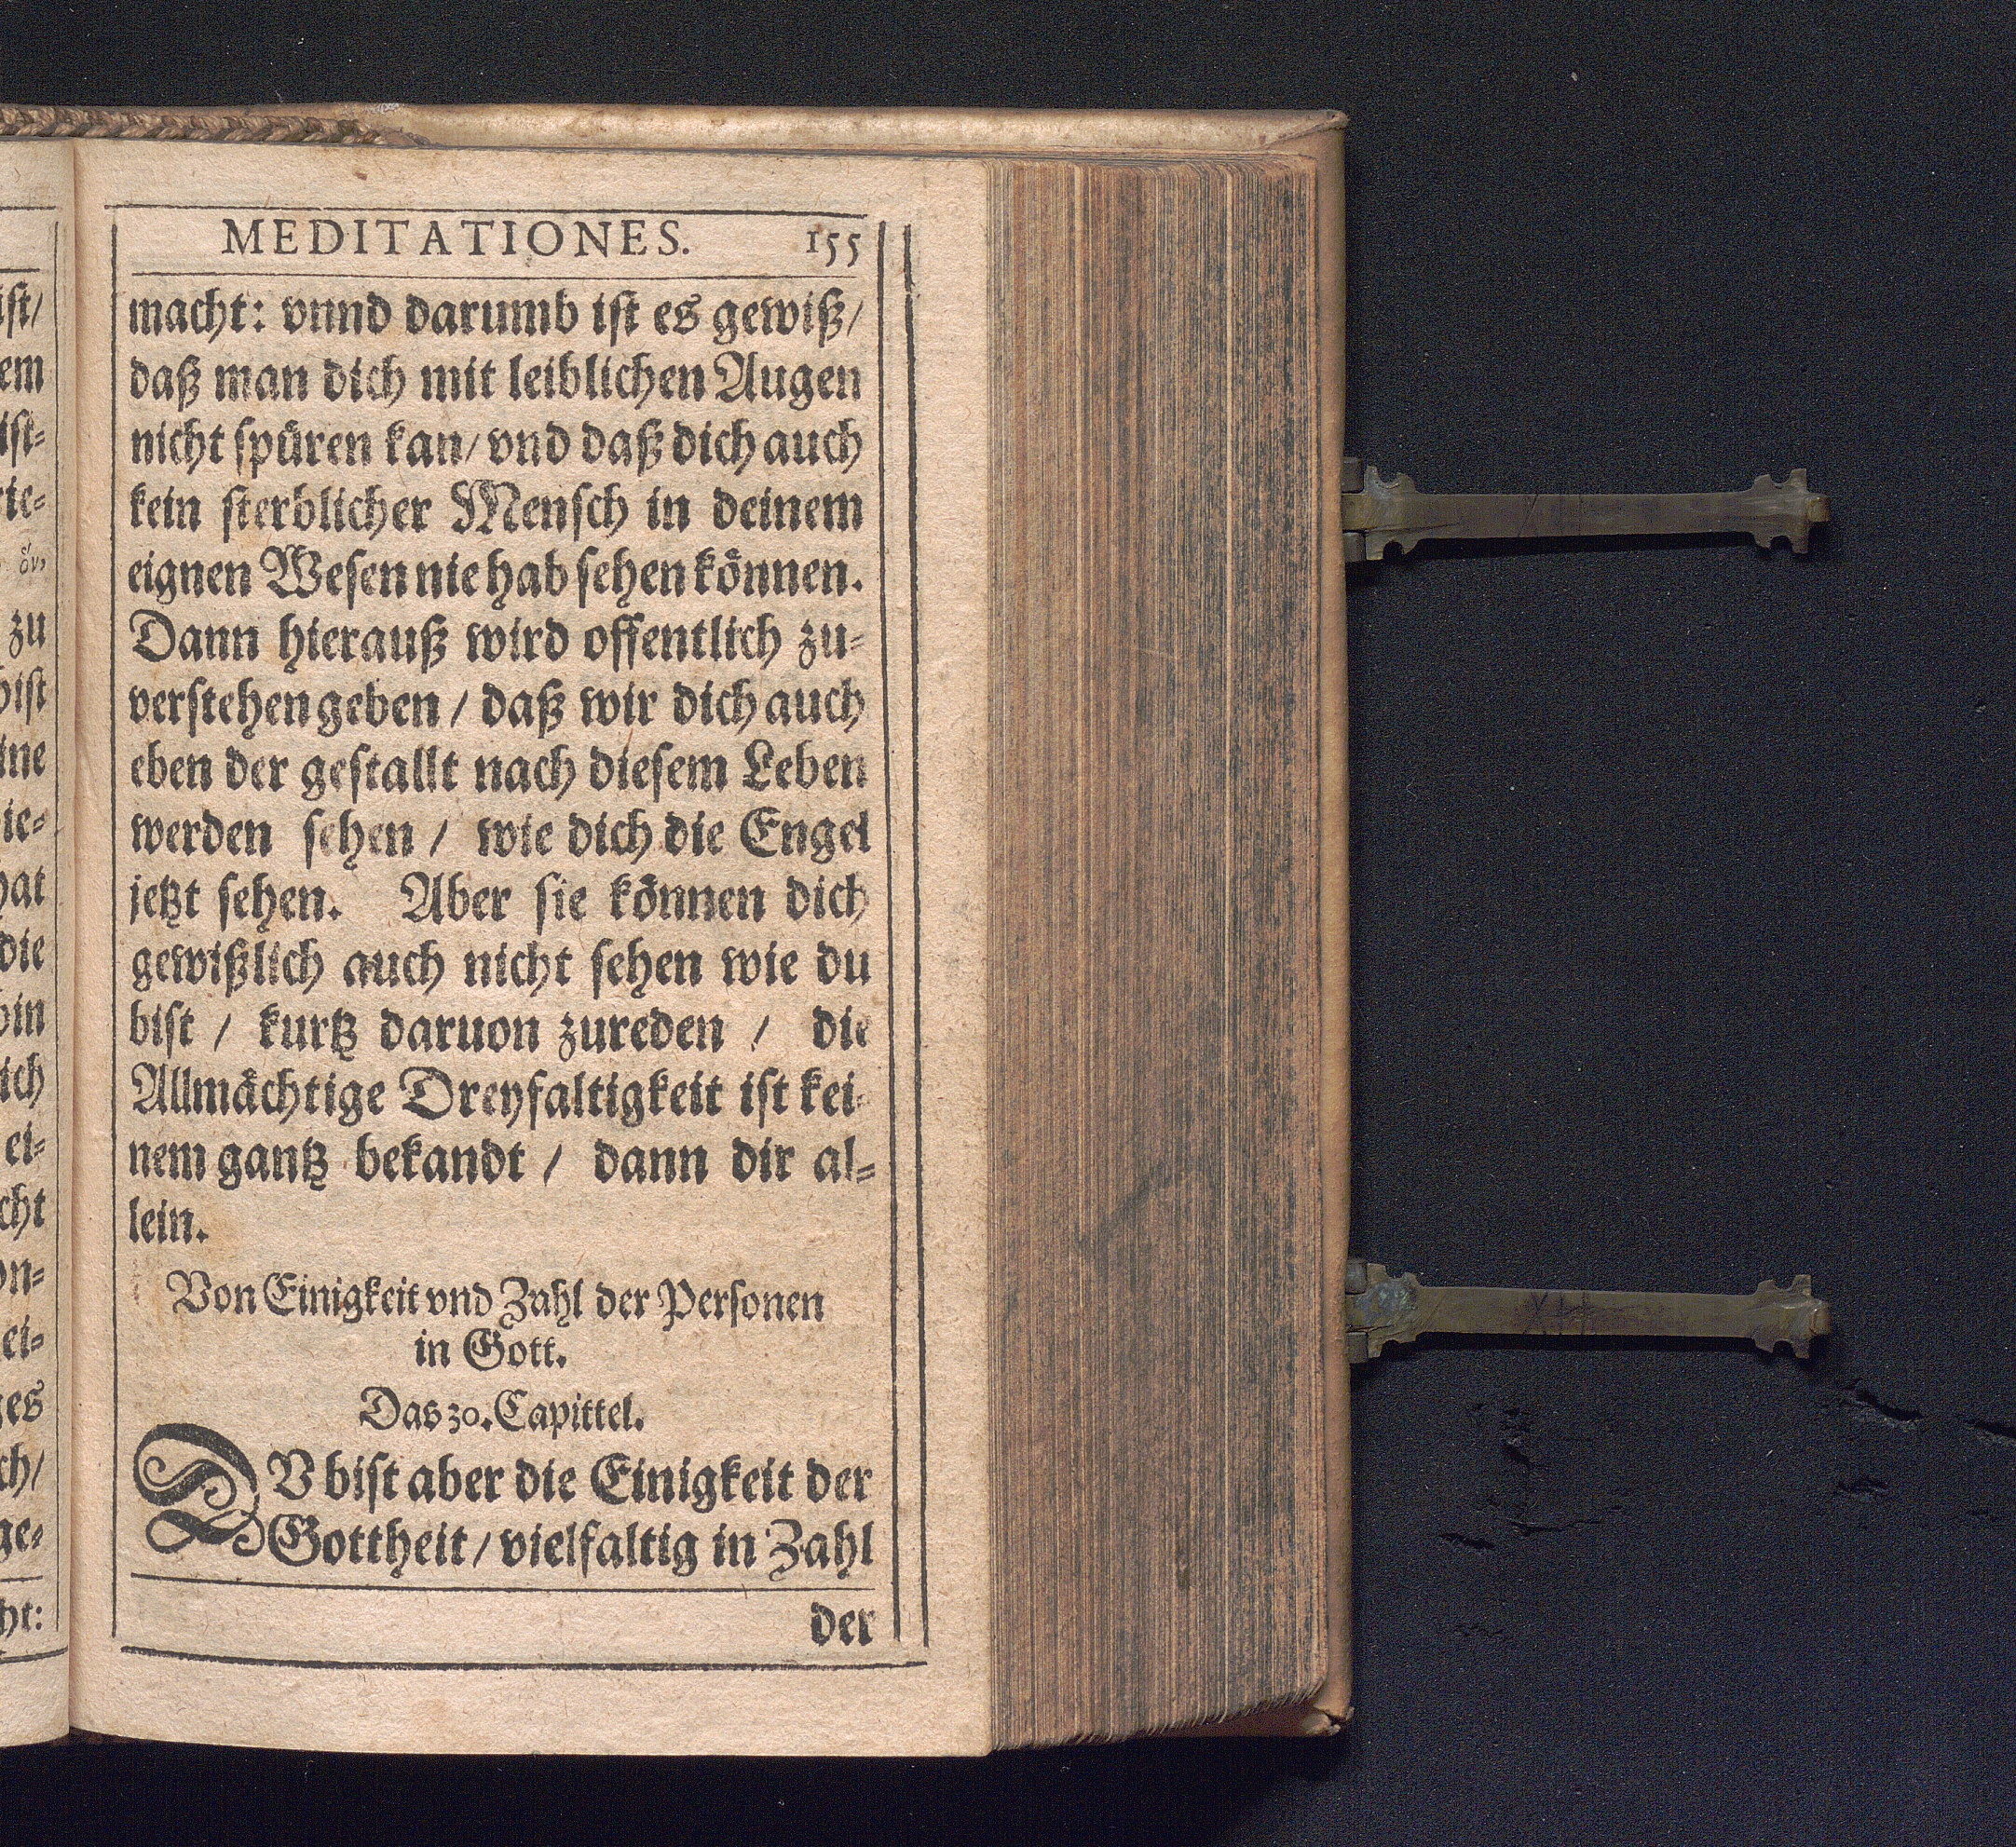 MEDITATIONES. 155
macht: vnnd darumb ist es gewiß/
daß man dich mit leiblichen Augen
nicht spüren kan/ vnd daß dich auch
kein sterblicher Mensch in deinem
eignen Wesen nie hab sehen können.
Dann hierauß wird offentlich zu-
verstehen geben / daß wir dich auch
eben der gestallt nach diesem Leben
werden sehen / wie dich die Engel
jetzt sehen. Aber sie können dich
gewißlich auch nicht sehen wie du
bist / kurtz daruon zureden / die
Allmächtige Dreyfaltigkeit ist kei-
nem gantz bekandt / dann dir al-
lein.
Von Einigkeit vnd Zahl der Personen
in Gott.
Das 30. Capittel.
DV bist aber die Einigkeit der
Gottheit / vielfaltig in Zahl
der